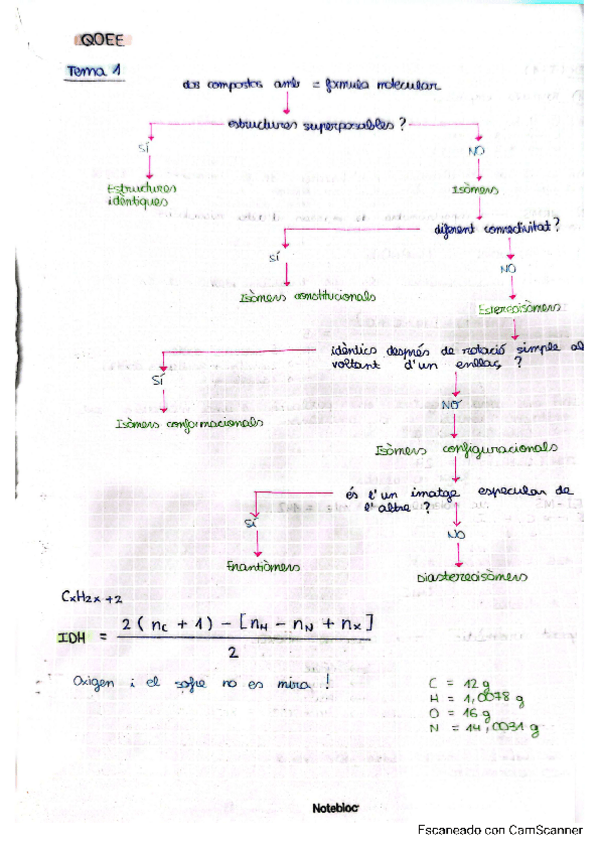 QOEE
Tema 1
dos compostos amb = fórmula molecular
estructures superposables?
SÍ
NO
Estructures
idèntiques
Isòmers
diferent connectivitat?
SÍ
NO
Isòmers constitucionals
Estereoisòmers
idèntics després de rotació simple al
voltant d'un enllaç ?
SÍ
NO
Isòmers conformacionals
Isòmers configuracionals
és l'un imatge especular de
l'altre ?
SÍ
NO
Enantiòmers
Diastereoisòmers
CxH2x+2
IDH = 2(nC + 1) - [nH - nN + nX] / 2
Oxigen i el sofre no es mira !
C = 12 g
H = 1,0078 g
O = 16 g
N = 14,0031 g
Notebloc
Escaneado con CamScanner